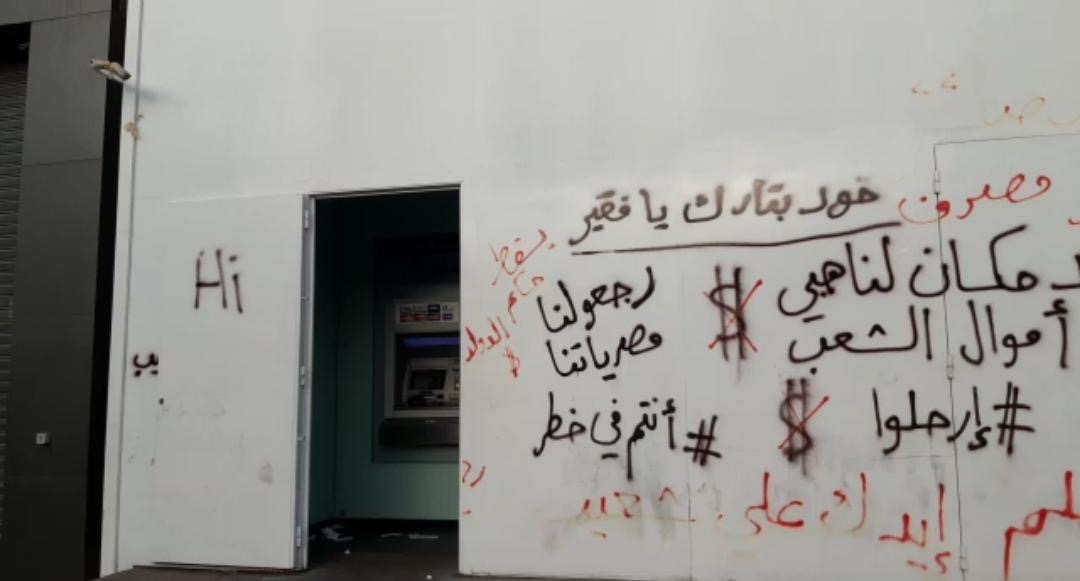 خود بتارك يا فقير
مكان لناهبي
أموال الشعب
$
#إرحلوا
$
رجعولنا
مصرياتنا
#أنتم في خطر
يسقط
حكم
الدولار
$
إيدك على شعبي
Hi
يب